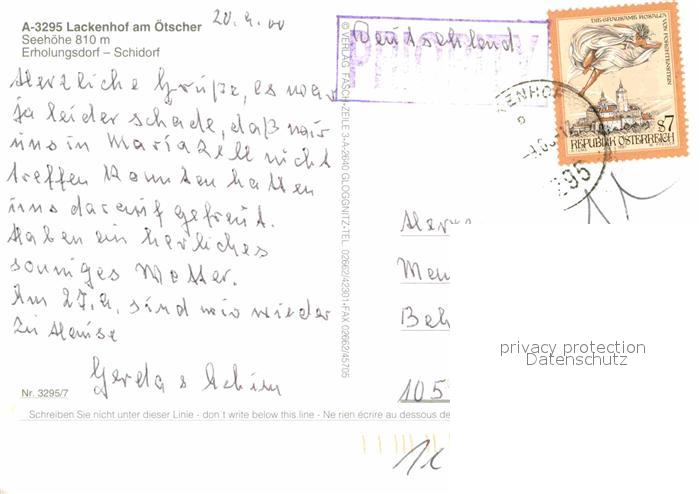 A-3295 Lackenhof am Ötscher
Seehöhe 810 m
Erholungsdorf – Schidorf
20.4.00
Herzliche Grüße, es war
ja leider schade, daß wir
uns in Mariazell nicht
treffen konnten hatten
uns darauf gefreut.
Haben ein herliches
sonniges Wetter.
Am 27.4. sind wir wieder
zu Hause
Gerda &
Nr. 3295/7
Schreiben Sie nicht unter dieser Linie - don´t write below this line - Ne rien écrire au dessous de
© VERLAG FASCH-ZEILE 3-A-2640 GLOGGNITZ-TEL. 02662/42301•FAX 02662/45705
Deutschland
PRIORITY
DIE GRAUSAME ROSALIA VON FORCHTENSTEIN
S7
REPUBLIK ÖSTERREICH
3295
Herr
Men
Beh
105
privacy protection
Datenschutz